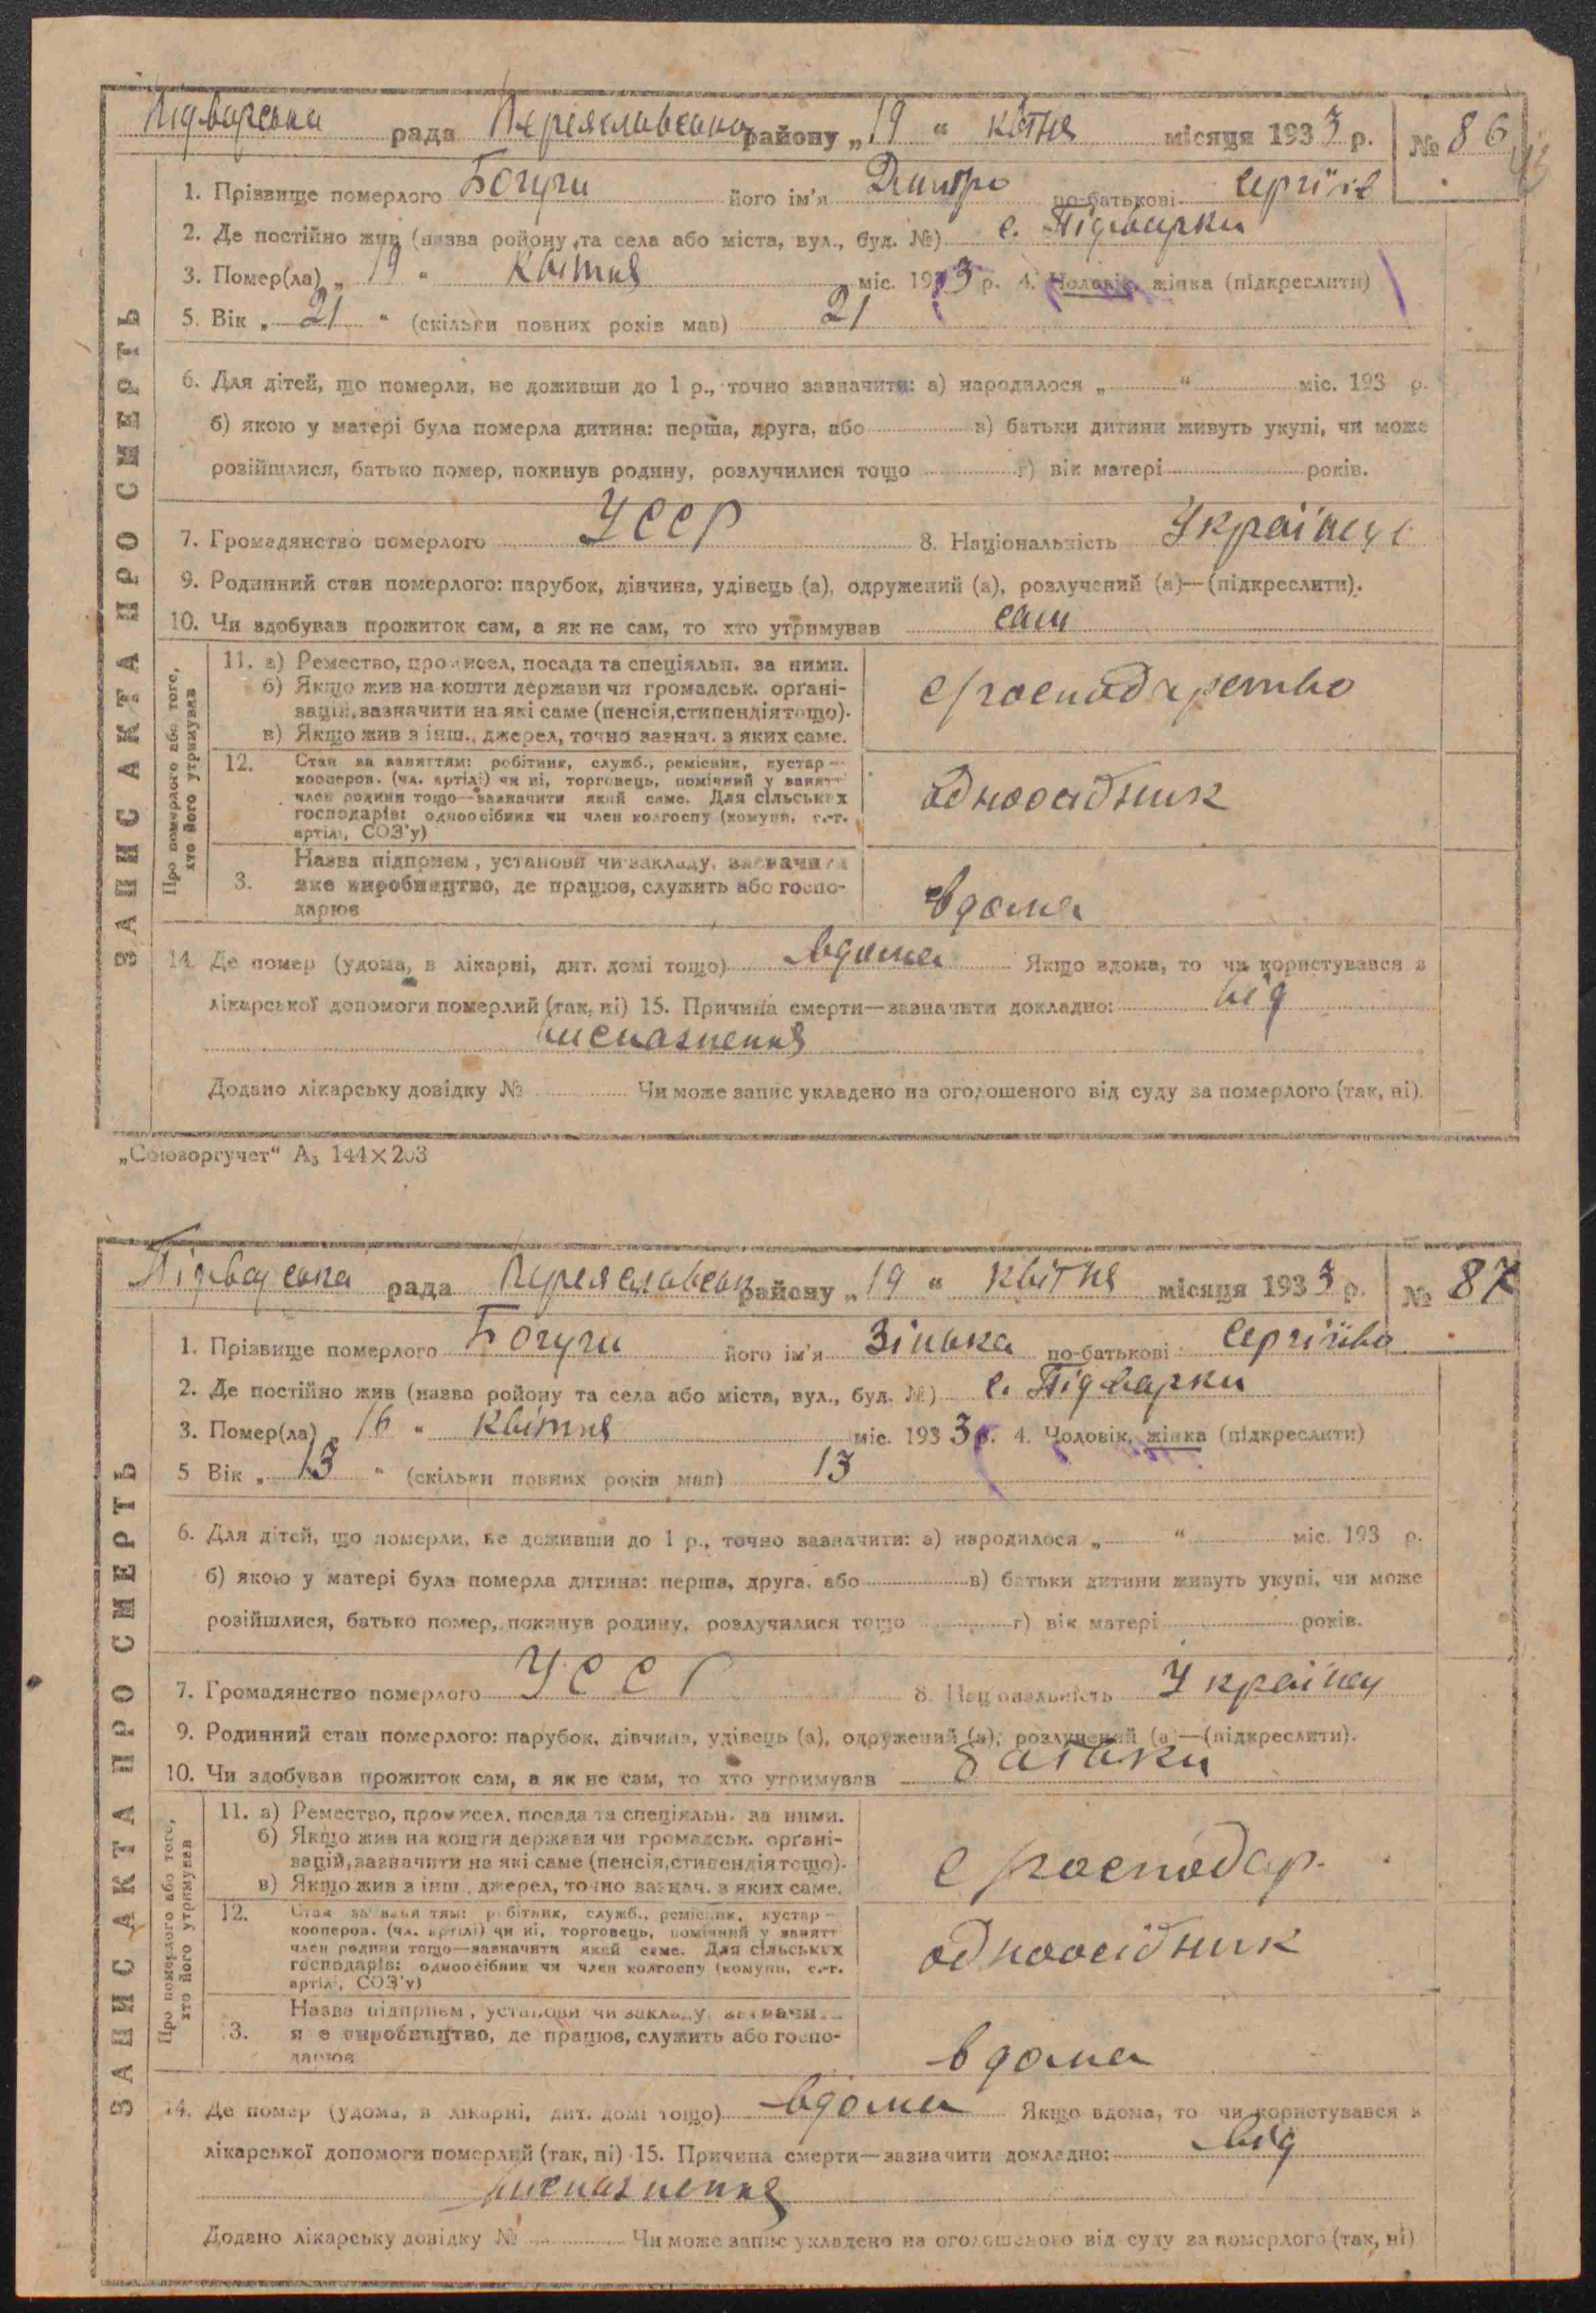 Підварська рада Переяславського району „19“ квітня місяця 1933 р. № 86
ЗАПИС АКТА ПРО СМЕРТЬ
1. Прізвище померлого Богуги його ім'я Дмитро по-батькові Сергіїв
2. Де постійно жив (назва ройону та села або міста, вул., буд. №) с. Підварки
3. Помер(ла) „19“ Квітня міс. 1933 р. 4. Чоловік, жінка (підкреслити)
5. Вік „21“ (скільки повних років мав) 21
6. Для дітей, що померли, не доживши до 1 р., точно зазначити: а) народилося „ “ міс. 193 р.
б) якою у матері була померла дитина: перша, друга, або в) батьки дитини живуть укупі, чи може
розійшлися, батько помер, покинув родину, розлучилися тощо г) вік матері років.
7. Громадянство померлого УССР 8. Національність Українец
9. Родинний стан померлого: парубок, дівчина, удівець (а), одружений (а), розлучений (а)—(підкреслити).
10. Чи здобував прожиток сам, а як не сам, то хто утримував сам
Про померлого або того, хто його утримував
11. а) Ремество, промисел, посада та спеціяльн. за ними.
б) Якщо жив на кошти держави чи громадськ. орґані-
зацій, зазначити на які саме (пенсія, стипендія тощо).
в) Якщо жив з інш., джерел, точно зазнач. з яких саме.
с господарство
12. Стан за заняттям: робітник, служб., ремісник, кустар—
кооперов. (чл. артілі) чи ні, торговець, помічний у занятт
член родини тощо—зазначити який саме. Для сільських
господарів: одноосібник чи член колгоспу (комуни, с.-г.
артілі, СОЗ'у)
одноосібник
3. Назва підприєм., установи чи закладу, зазначити
яке виробництво, де працює, служить або госпо-
дарює
вдома
14. Де помер (удома, в лікарні, дит. домі тощо) вдома Якщо вдома, то чи користувався з
лікарської допомоги померлий (так, ні) 15. Причина смерти—зазначити докладно: від
виснаження
Додано лікарську довідку № Чи може запис укладено на оголошеного від суду за померлого (так, ні).
„Союзоргучет“ А₅ 144×203
Підварська рада Переяславськ району „19“ квітня місяця 1933 р. № 87
ЗАПИС АКТА ПРО СМЕРТЬ
1. Прізвище померлого Богуги його ім'я Зінька по-батькові Сергіївна
2. Де постійно жив (назва ройону та села або міста, вул., буд. №) с. Підварки
3. Помер(ла) „16“ Квітня міс. 1933 р. 4. Чоловік, жінка (підкреслити)
5 Вік „13“ (скільки повних років мав) 13
6. Для дітей, що померли, не доживши до 1 р., точно зазначити: а) народилося „ “ міс. 193 р.
б) якою у матері була померла дитина: перша, друга, або в) батьки дитини живуть укупі, чи може
розійшлися, батько помер, покинув родину, розлучилися тощо г) вік матері років.
7. Громадянство померлого УССР 8. Національність Українец
9. Родинний стан померлого: парубок, дівчина, удівець (а), одружений (а), розлучений (а)—(підкреслити).
10. Чи здобував прожиток сам, а як не сам, то хто утримував батьки
Про померлого або того, хто його утримував
11. а) Ремество, промисел, посада та спеціяльн. за ними.
б) Якщо жив на кошти держави чи громадськ. орґані-
зацій, зазначити на які саме (пенсія, стипендія тощо).
в) Якщо жив з інш., джерел, точно зазнач. з яких саме.
с господар.
12. Стан за заняттям: робітник, служб., ремісник, кустар—
кооперов. (чл. артілі) чи ні, торговець, помічний у занятт
член родини тощо—зазначити який саме. Для сільських
господарів: одноосібник чи член колгоспу (комуни, с.-г.
артілі, СОЗ'у)
одноосібник
3. Назва підприєм., установи чи закладу, зазначи
яке виробництво, де працює, служить або госпо-
дарює
вдома
14. Де помер (удома, в лікарні, дит. домі тощо) вдома Якщо вдома, то чи користувався з
лікарської допомоги померлий (так, ні) 15. Причина смерти—зазначити докладно: від
виснаження
Додано лікарську довідку № Чи може запис укладено на оголошеного від суду за померлого (так, ні)